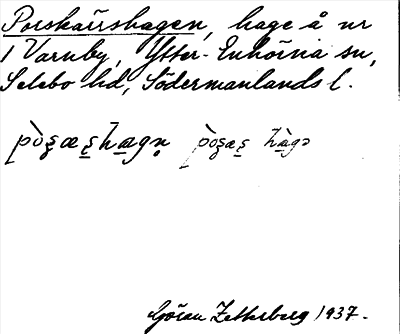 Porskärrshagen, hage å nr
1 Varnby, Ytter-Enhörna sn,
Selebo hd, Södermanlands l.
Göran Zetterberg 1937.